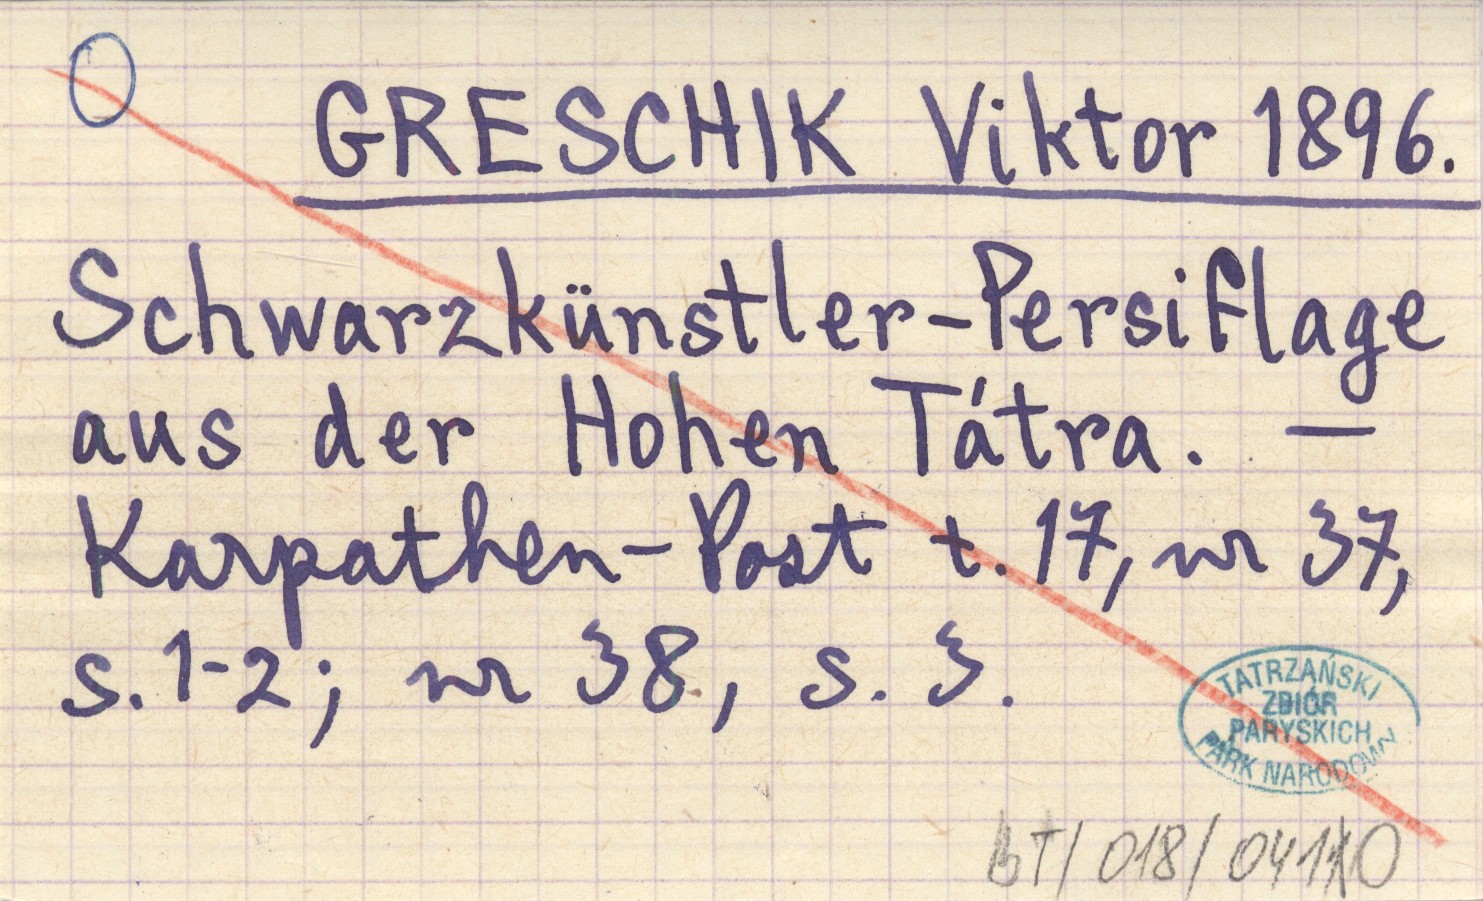 GRESCHIK Viktor 1896.
Schwarzkünstler-Persiflage
aus der Hohen Tátra. —
Karpathen-Post t. 17, nr 37,
s. 1-2; nr 38, s. 3.
TATRZAŃSKI
ZBIÓR
PARYSKICH
PARK NARODOWY
bT/018/